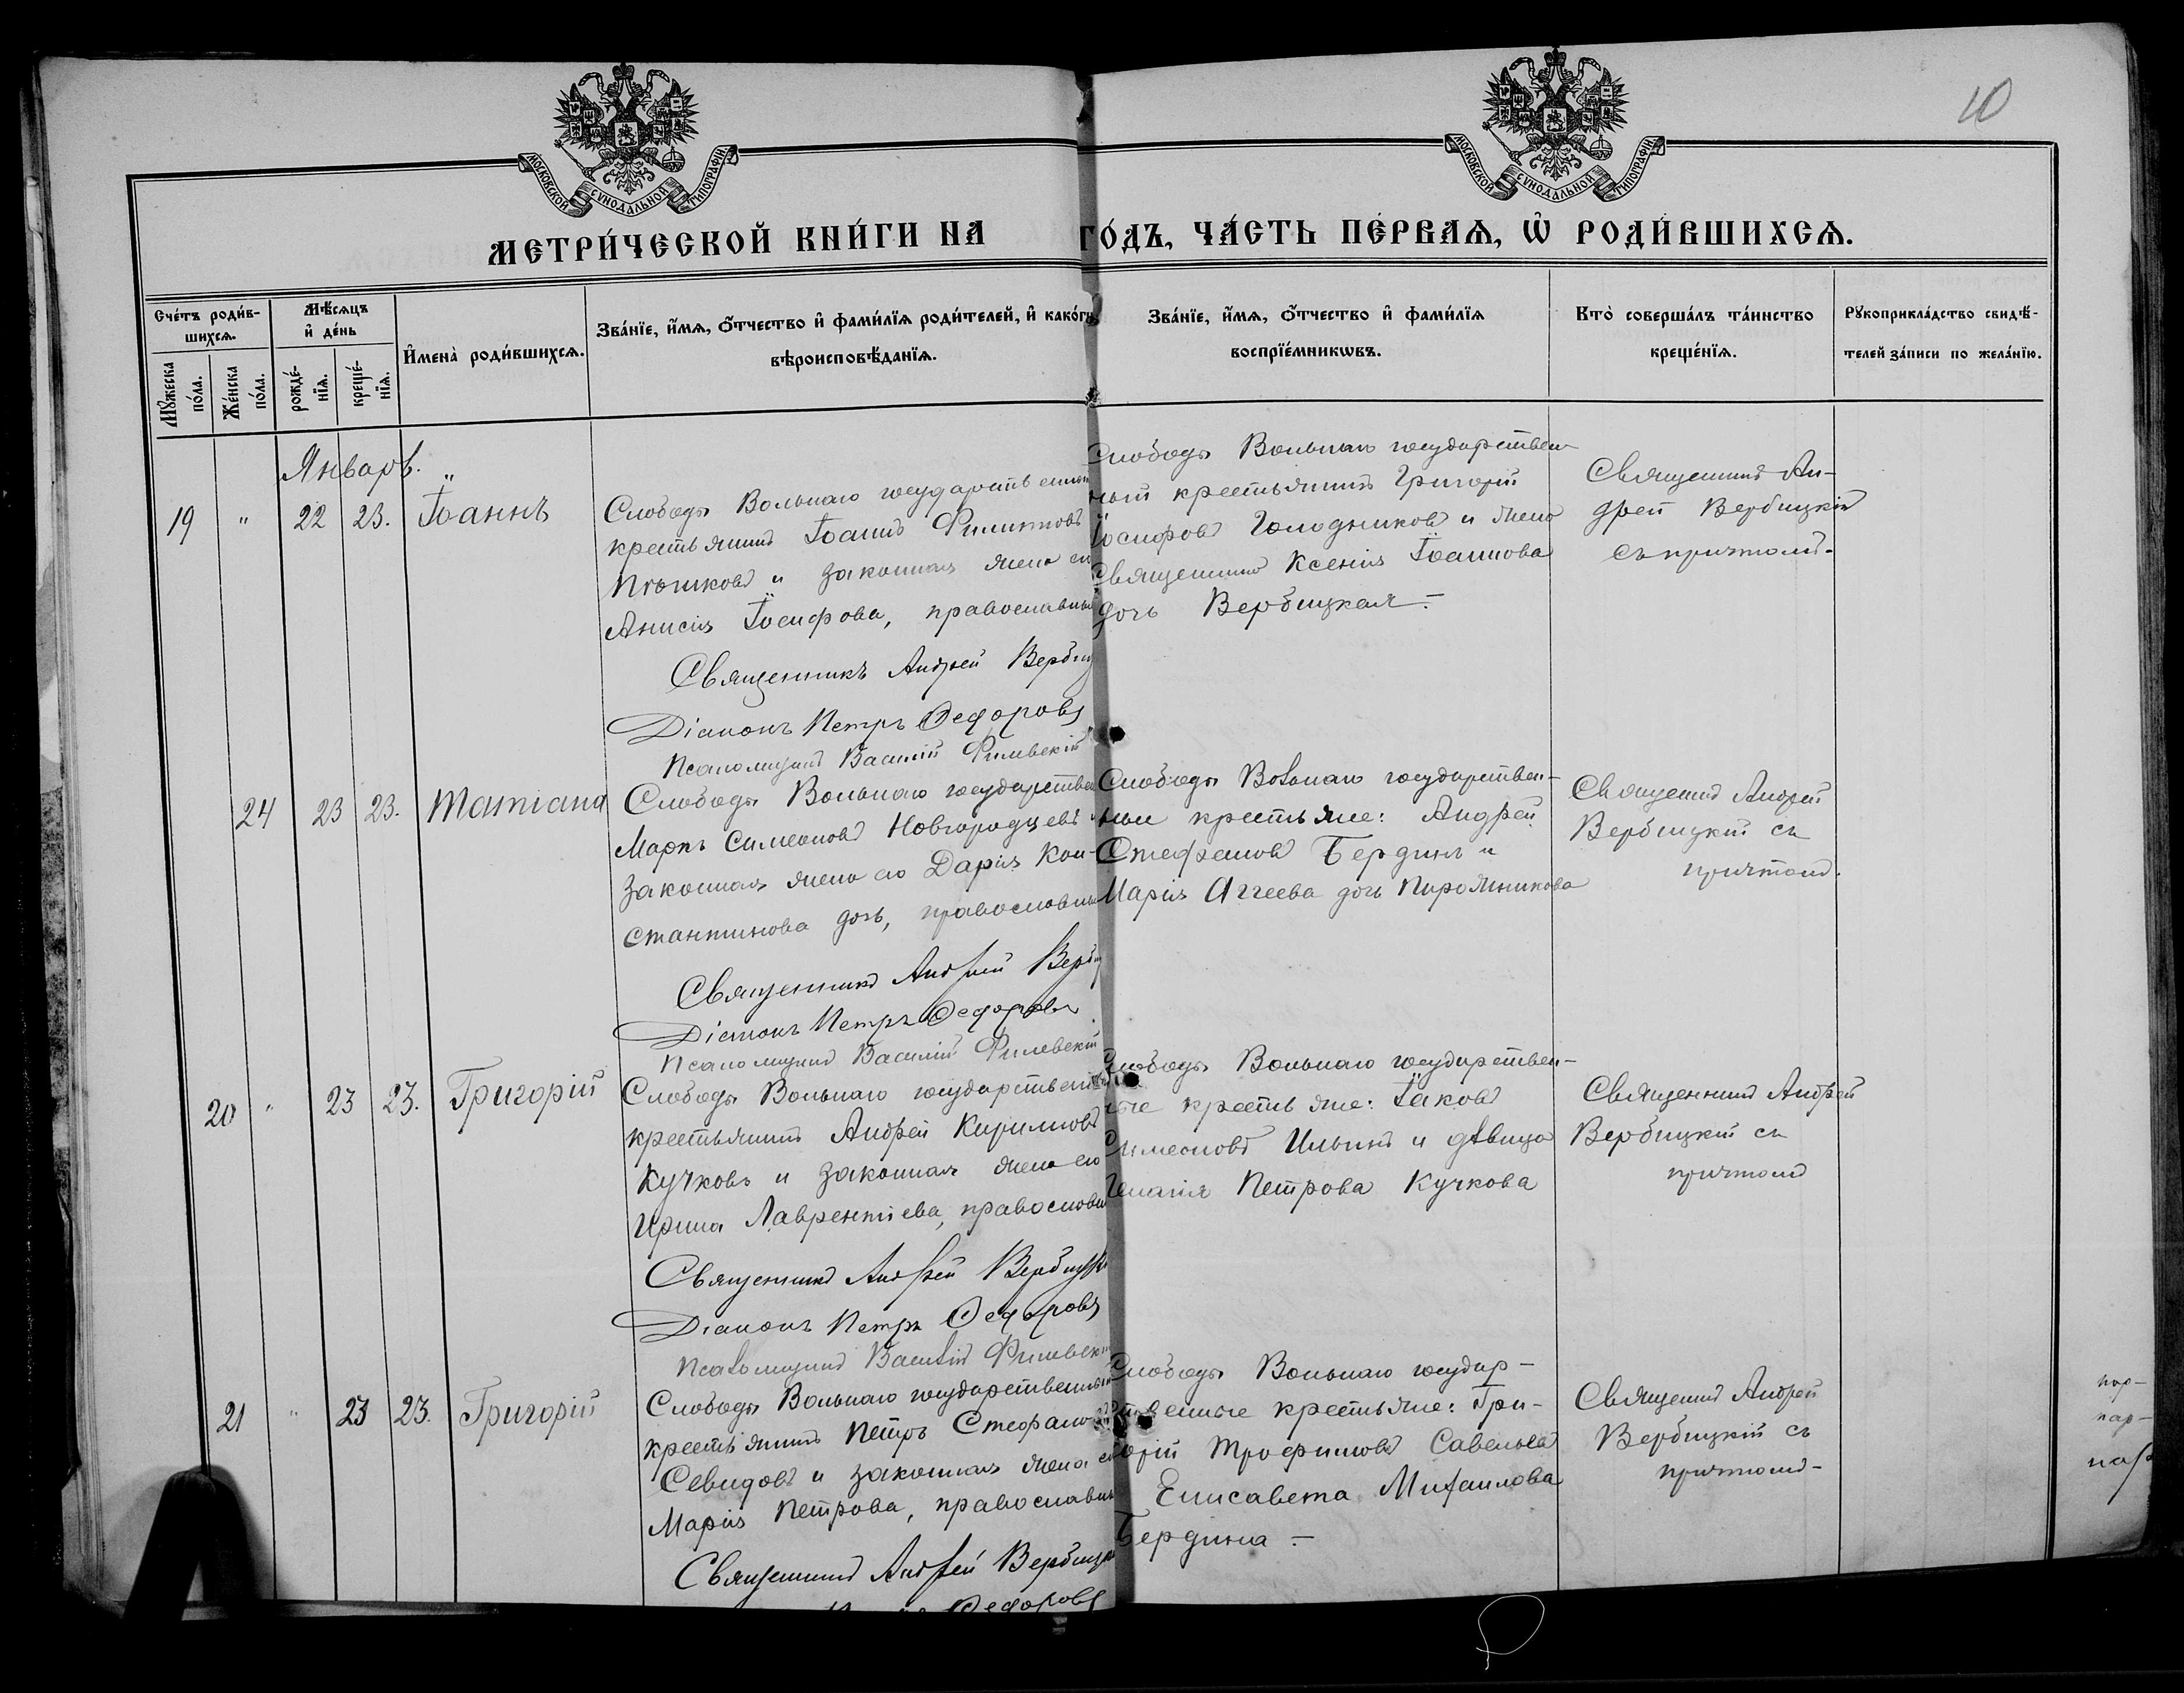 10
МОСКОВСКОЙ СѴНОДАЛЬНОЙ ТИПОГРАФІИ
МОСКОВСКОЙ СѴНОДАЛЬНОЙ ТИПОГРАФІИ
МЕТРИ́ЧЕСКОЙ КНИ́ГИ НА ГО́ДЪ, ЧА́СТЬ ПЕ́РВАѦ, Ѽ РОДИ́ВШИХСѦ.
Сче́тъ роди́в-
шихсѧ.
Мꙋ́жеска
по́ла.
Же́нска
по́ла.
Мѣ́сѧцъ
и҆ де́нь
рожде́-
нїѧ.
креще́-
нїѧ.
И҆мена̀ роди́вшихсѧ.
Зва́нїе, и҆́мѧ, ѻ҆́тчество и҆ фами́лїѧ роди́телей, и҆ како́гѡ
вѣроисповѣ́данїѧ.
Зва́нїе, и҆́мѧ, ѻ҆́тчество и҆ фами́лїѧ
воспрїе́мникѡвъ.
Кто̀ соверша́лъ та́инство
креще́нїѧ.
Рꙋкоприкла́дство свидѣ́-
телей за́писи по жела́нїю.
Январь.
19 " 22 23. Іоаннъ
Слободы Вольнаго государственный
крестьянинъ Іоаннъ Филиповъ
и законная жена его
Анисія Іосифова, православные
Священникъ Андрей Вербиц
Діаконъ Петръ Ѳедоровъ
Псаломщикъ Василій Филевскій
Слободы Вольнаго государствен-
ный крестьянинъ Григорій
Іосифовъ Голодниковъ и жена
Священника Ксенія Іоаннова
дочь Вербицкая.-
Священникъ Ан-
дрей Вербицкій
съ причтомъ.
24 23 23. Татіана
Слободы Вольнаго государствен
Маркъ Симеоновъ Новгородцевъ и
законная жена его Дарія Кон-
стантинова дочь, православные
Священникъ Андрей Верби
Діаконъ Петръ Ѳедоровъ
Псаломщикъ Василій Филевскій
Слободы Вольнаго государствен-
ные крестьяне: Андрей
Стефановъ Бердинъ и
Марія Аггеева дочь Пирожникова
Священникъ Андрей
Вербицкій съ
причтомъ.
20 " 23 23. Григорій
Слободы Вольнаго государственный
крестьянинъ Андрей Кириловъ
Кучковъ и законная жена его
Ирина Лаврентіева, православные
Священникъ Андрей Вербицкій
Діаконъ Петръ Ѳедоровъ
Псаломщикъ Василій Филевскій
Слободы Вольнаго государствен-
ные крестьяне: Іаковъ
Симеоновъ Ильинъ и дѣвица
Петрова Кучкова
Священникъ Андрей
Вербицкій съ
причтомъ
21 " 23 23. Григорій
Слободы Вольнаго государственный
крестьянинъ Петръ Стефановъ
Севидовъ и законная жена его
Марія Петрова, православные
Священникъ Андрей Вербицк
Ѳедоровъ
Слободы Вольнаго государ-
ственные крестьяне: Гри-
горій Трофимовъ Савельевъ
Елисавета Михаилова
Бердина.-
Священникъ Андрей
Вербицкій съ
причтомъ-